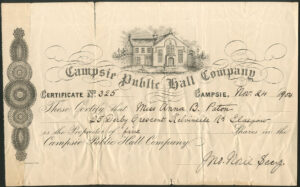 Campsie Public Hall Company
CERTIFICATE No. 325 CAMPSIE, Nov 24 190
These Certify that Miss Anna B. Paton
25 Derby Crescent Kelvinside Glasgow
is the Proprietor of Share in the
Campsie Public Hall Company
Secy